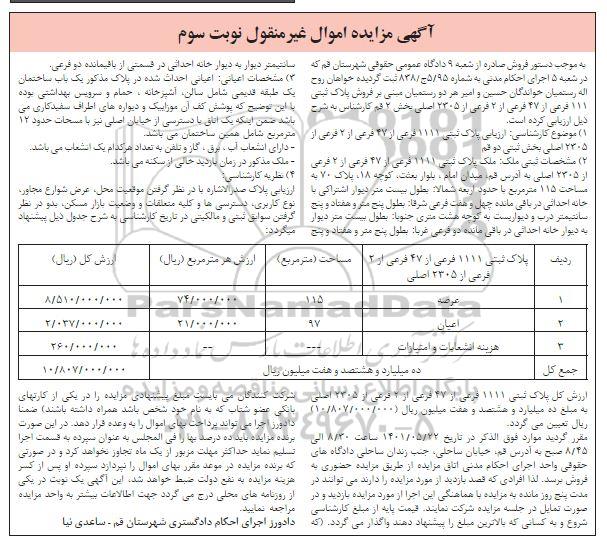 آگهی مزایده اموال غیرمنقول نوبت سوم
به موجب دستور فروش صادره از شعبه ۹ دادگاه عمومی حقوقی شهرستان قم که
در شعبه ۵ اجرای احکام مدنی به شماره ۵/۹۵ج/۸۳۸ ثبت گردیده خواهان روح
اله رستمیان خواندگان حسین و امیر هر دو رستمیان مبنی بر فروش پلاک ثبتی
۱۱۱ فرعی از ۴۷ فرعی از ۲ فرعی از ۲۳۰۵ اصلی بخش ۲ قم کارشناس به شرح
ذیل ارزیابی کرده است.
۱) موضوع کارشناسی: ارزیابی پلاک ثبتی ۱۱۱۱ فرعی از ۴۷ فرعی از ۲ فرعی از
۲۳۰۵ اصلی بخش ثبتی دو قم
۲) مشخصات ثبتی ملک: ملک پلاک ثبتی ۱۱۱۱ فرعی از ۴۷ فرعی از ۲ فرعی
از ۲۳۰۵ اصلی به آدرس قم، میدان امام ، بلوار بعثت، کوچه ۱۸، پلاک ۷۰ به
مساحت ۱۱۵ مترمربع با حدود اربعه شمالا: بطول بیست متر دیوار اشتراکی با
خانه احداثی در باقی مانده چهل و هفت فرعی شرقا: بطول پنج متر و هفتاد و پنج
سانتیمتر درب و دیواریست به کوچه هشت متری جنوبا: بطول بیست متر دیوار
به دیوار خانه احداثی در باقی مانده دو فرعی غربا: بطول پنج متر و هفتاد و پنج
سانتیمتر دیوار به دیوار خانه احداثی در قسمتی از باقیمانده دو فرعی.
۳) مشخصات اعیانی: اعیانی احداث شده در پلاک مذکور یک باب ساختمان
یک طبقه قدیمی شامل سالن، آشپزخانه ، حمام و سرویس بهداشتی بوده
با این توضیح که پوشش کف آن موزاییک و دیواره های اطراف سفیدکاری می
باشد ضمن اینکه یک اتاق با دسترسی از خیابان اصلی نیز با مساحت حدود ۱۲
مترمربع شامل همین ساختمان می باشد.
- دارای انشعاب آب ، برق ، گاز و تلفن به تعداد هرکدام یک انشعاب می باشد.
- ملک مذکور در زمان بازدید خالی از سکنه می باشد.
۴) نظریه کارشناسی:
ارزیابی پلاک صدرالاشاره با در نظر گرفتن موقعیت محل، عرض شوارع مجاور،
نوع کاربری، دسترسی ها و کلیه متعلقات و وضعیت بازار مسکن، بدو در نظر
گرفتن سوابق ثبتی و مالکیتی در تاریخ کارشناسی به شرح جدول ذیل پیشنهاد
میگردد:
ردیف پلاک ثبتی ۱۱۱۱ فرعی از ۴۷ فرعی از ۲ مساحت (مترمربع) ارزش هر مترمربع (ریال) ارزش کل (ریال)
فرعی از ۲۳۰۵ اصلی
۱ عرصه ۱۱۵ ۷۴/۰۰۰/۰۰۰ ۸/۵۱۰/۰۰۰/۰۰۰
۲ اعیان ۹۷ ۲۱/۰۰۰/۰۰۰ ۲/۰۳۷/۰۰۰/۰۰۰
۳ هزینه انشعابات و امتیازات --- -- ۲۶۰/۰۰۰/۰۰۰
جمع کل ده میلیارد و هشتصد و هفت میلیون ریال ۱۰/۸۰۷/۰۰۰/۰۰۰
ارزش کل پلاک ثبتی ۱۱۱۱ فرعی از ۴۷ فرعی از ۲ فرعی از ۲۳۰۵ اصلی
به مبلغ ده میلیارد و هشتصد و هفت میلیون ریال (۱۰/۸۰۷/۰۰۰/۰۰۰)
ریال تعیین می گردد.
مقرر گردید موارد فوق الذکر در تاریخ ۱۴۰۱/۰۵/۲۲ ساعت ۸/۳۰ الی
۸/۴۵ صبح به آدرس قم، خیابان ساحلی، جنب زندان ساحلی دادگاه های
حقوقی واحد اجرای احکام مدنی اتاق مزایده از طریق مزایده حضوری به
فروش برسد. لذا افرادی که قصد بازدید از مورد مزایده را دارند می توانند در
مدت پنج روز مانده به مزایده با هماهنگی این اجرا از مورد مزایده بازدید و در
صورت تمایل در جلسه مزایده شرکت نمایند. قیمت پایه از مبلغ کارشناسی
شروع و به کسانی که بالاترین مبلغ را پیشنهاد دهند واگذار می گردد. (که
شرکت کنندگان می بایست مبلغ پیشنهادی مزایده را در یکی از کارتهای
بانکی عضو شتاب که به نام خود شخص باشد همراه داشته باشند) ضمنا
دادورز اجرا می تواند پرداخت بهای اموال را به وعده قرار دهد. در این صورت
برنده مزایده باید ده درصد بها را فی المجلس به عنوان سپرده به قسمت اجرا
تسلیم نماید حداکثر مهلت مزبور از یک ماه تجاوز نخواهد کرد و در صورتی
که برنده مزایده در موعد مقرر بهای اموال را نپردازد سپرده او پس از کسر
هزینه مزایده به نفع دولت ضبط خواهد شد، این آگهی یک نوبت در یکی
از روزنامه های محلی درج می گردد جهت اطلاعات بیشتر به واحد مزایده
مراجعه نمایید.
دادورز اجرای احکام دادگستری شهرستان قم - ساعدی نیا
ParsNamadData
پایگاه اطلاع رسانی مناقصه و مزایده